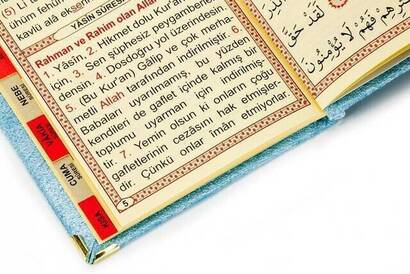 (5) Li
kavlu alâ ekse
YÂSÎN SÛRESİ
Rahman ve Rahim olan Alla
1. Yâsin. 2. Hikmet dolu Kur'an
3. Sen şüphesiz peygamberler
densin. 4. Dosdoğru yol üzerindesin.
5. (Bu Kur'an) Gâlip ve çok merha
metli Allah tarafından indirilmiştir. 6.
Babaları uyarılmamış, bu yüzden
kendileri de gaflet içinde kalmış bir
toplumu uyarman için indirilmiş-
tir. 7. Yemin olsun ki onların çoğu
gafletlerinin cezasını hak etmişler-
dir. Çünkü onlar îmân etmiyorlar.
5
لَقَدْ حَقَّ
فَهُمْ لَا يُؤْمِنُونَ
NEBE
SÛRESİ
VAKIA
CUMA
SÛRESİ
KISA